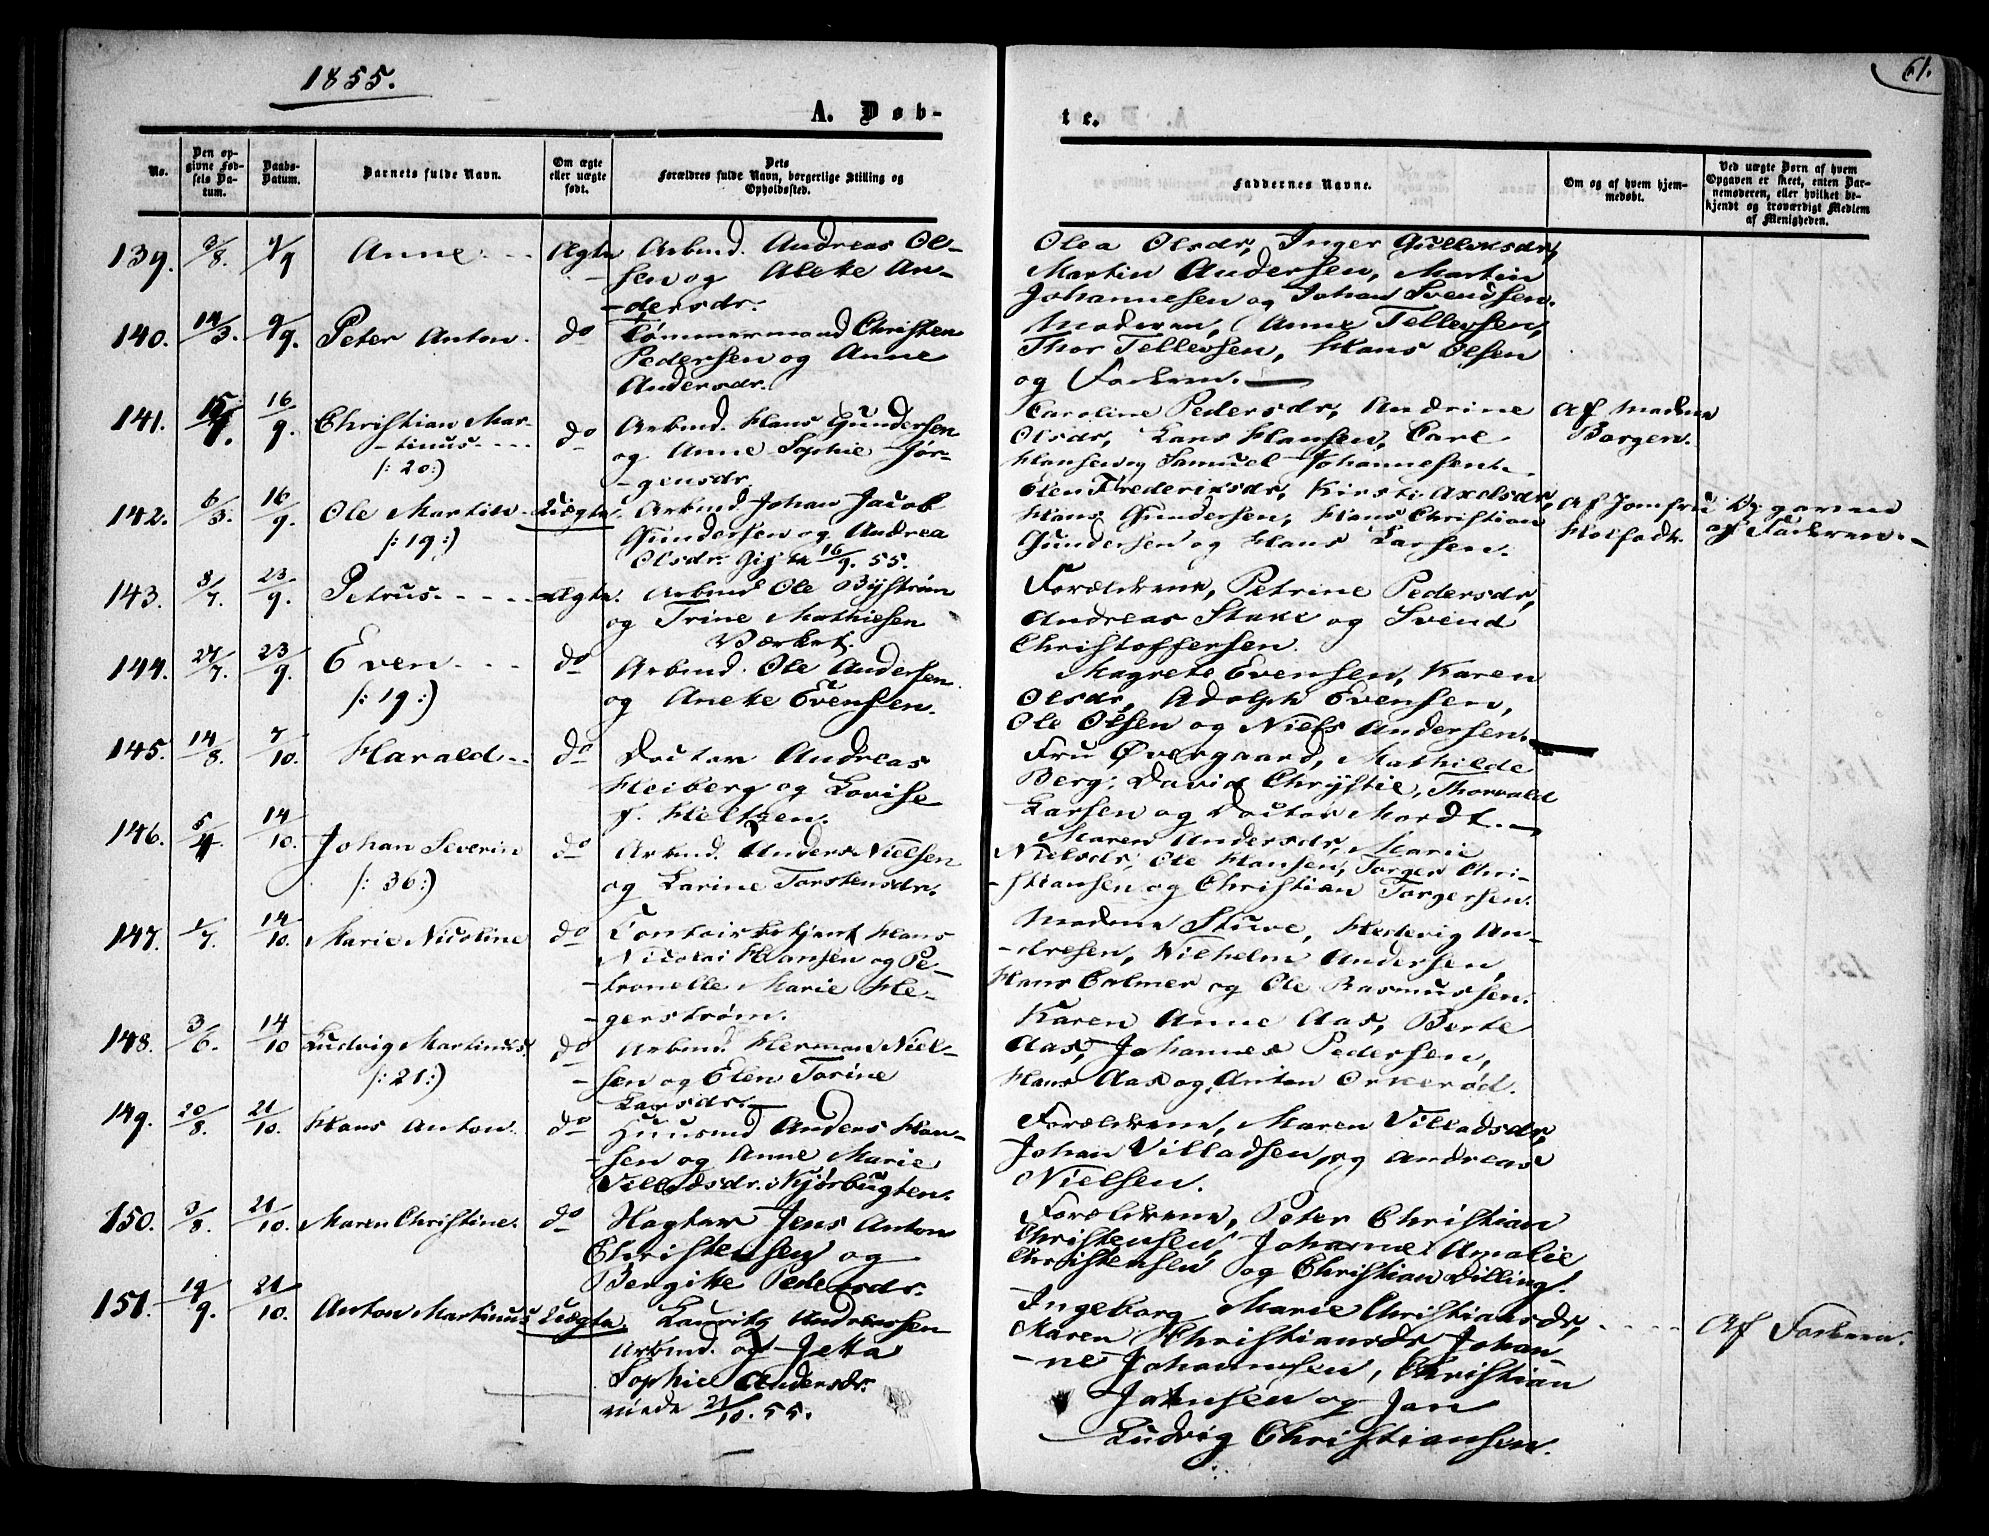 1855.
61.
A. Døb-
te.
No.
Den op-
givne Fød-
sels Da-
tum.
Daabs-
Datum.
Barnets fulde Navn.
Om ægte
eller uægte
født.
Dets
Forældres fulde Navn, borgerlige Stilling og
Opholdssted.
Faddernes Navne.
Om og af hvem hjem-
medøbt.
Ved uægte Børn af hvem
Opgaven er skeet, enten Bar-
nemoderen, eller hvilket be-
kjendt og troværdigt Medlem
af Menigheden.
139. 3/8. 9/9 Anne Ægte Arbmd. Andreas Ol-
sen og Aleke An-
dersdr.
Olea Olsdr, Inger Gulleksdr,
Martin Andersen, Martin
Johannesen og Johan Svendsen.
140. 14/3. 9/9. Peter Anton. do Tømmermand Christen
Pedersen og Anne
Andersdr.
Moderen, Anne Tellevsen,
Thor Tellevsen, Hans Olsen
og Faderen.
141. 16/9. Christian Mar-
tinus
/: 20:)
do Arbmd. Hans Gundersen
og Anne Sophie Jør-
gensdr.
Caroline Pedersdr, Andrine
Olsdr, Lars Hansen, Carl
Hansen og Samuel Johannesen.
Af Madme
Borgen.
142. 6/3. 16/9. Ole Martin
/: 19:)
Uægte. Arbmd. Johan Jacob
Gundersen og Andrea
Olsdr. Gifte 16/9. 55.
Elen Frederiksdr, Kirsti Axelsdr,
Hans Gundersen, Hans Christian
Gundersen og Hans Larsen.
Af Jomfru
Holfodt.
Opgaven
af Faderen.
143. 3/7. 23/9. Petrus. Ægte. Arbmd Ole Bystrøm
og Trine Mathiesen
Værket.
Forældrene, Petrine Pedersdr,
Andreas Stake og Svend
Christoffersen.
144. 24/7. 23/9. Even
/: 19:)
do Arbmd. Ole Andersen
og Aneke Evensen.
Magrete Evensen, Karen
Olsdr, Adolph Evensen,
Ole Olsen og Niels Andersen.
145. 14/8. 7/10. Harald do Doctor Andreas
Heiberg og Lovise
f. Heltzen.
Fru Øvergaard, Mathilde
Berg, David Chrystie, Thorvald
Larsen og Doctor Mordt.
146. 14/10. Johan Severin
/: 36:)
do Arbmd. Anders Nielsen
og Karine Torstensdr.
Maren Andersdr, Marie
Nielsdr, Ole Hansen, Torger Chri-
stiansen og Christian Torgersen.
147. 1/7. 14/10. Marie Nicoline do Contoirbetjent Hans
Nicolai Hansen og Pe-
tronelle Marie He-
gerstrøm.
Madme Stuve, Hedevig An-
dresen, Vilhelm Andersen,
Hans Colmer og Ole Rasmussen.
148. 3/6. 14/10 Ludvig Martinus.
/: 21:)
do Arbmd. Herman Niel-
sen og Elen Torine
Larsdr.
Karen Anne Aas, Berte
Aas, Johannes Pedersen,
Hans Aas og Anton Orkerød.
149. 20/8. 21/10. Hans Anton. do Huusmd Anders Han-
sen og Anne Marie
Villadsdr. Kjørbugten.
Forældrene, Maren Villadsdr,
Johan Villadsen og Andreas
Nielsen.
150. 3/8. 21/10. Maren Christine. do Jens Anton
Christensen og
Bergitte Pedersdr.
Forældrene, Peter Christian
Christensen, Johanne Amalie
Christensen og Christian Dilling.
151. 19/9. 21/10. Anton Martinus Uægte. Lauritz Andreassen
Arbmd. og Jetta
Sophie Andersdr.
viede 21/10. 55.
Ingeborg Marie Christiansdr,
Maren Christiansdr, Johan-
ne Johannesen, Christian
Johnsen og Jan
Ludvig Christiansen.
Af Faderen.